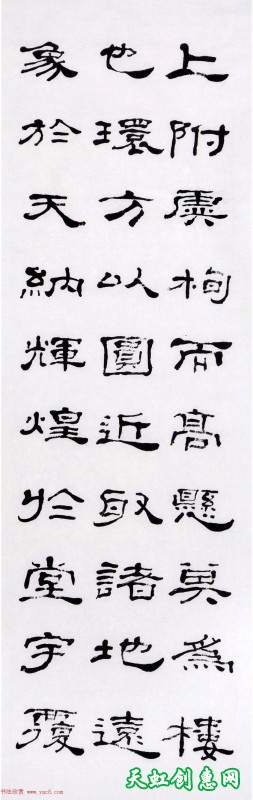 上附虗枸而高懸莫爲樓
也環方以圓近取諸地遠
象於天納輝煌於堂宇覆
书法欣赏 www.yac8.com
天虹创意网